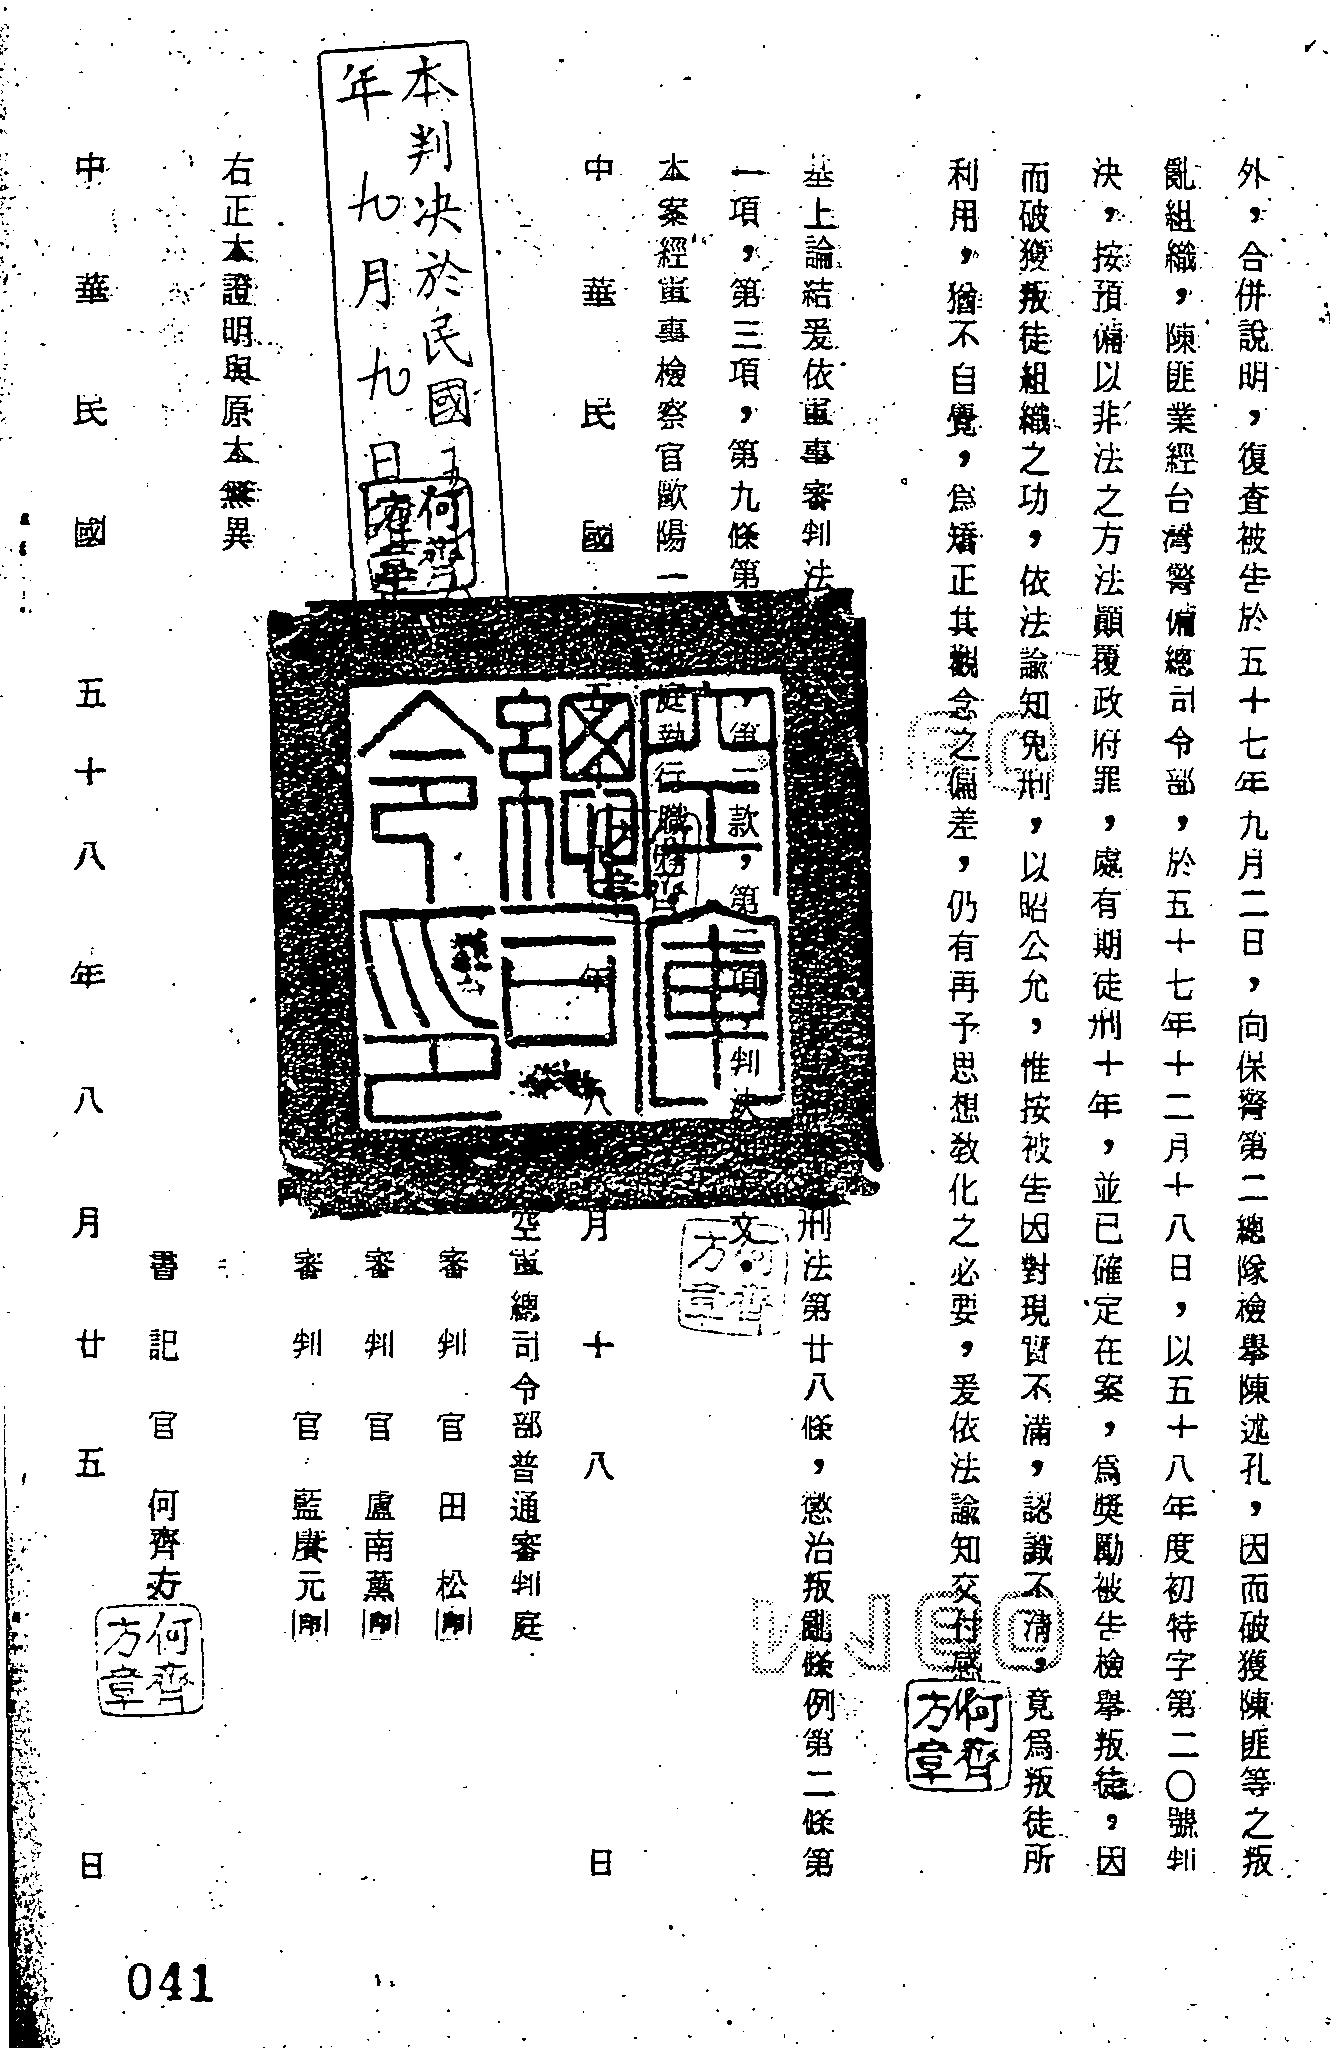 外，合併說明，復查被告於五十七年九月二日，向保警第二總隊檢舉陳述孔，因而破獲陳匪等之叛
亂組織，陳匪業經台灣警備總司令部，於五十七年十二月十八日，以五十八年度初特字第二〇號判
決，按預備以非法之方法顛覆政府罪，處有期徒刑十年，並已確定在案，為獎勵被告檢舉叛徒，因
而破獲叛徒組織之功，依法諭知免刑，以昭公允，惟按被告因對現實不滿，認識不清，竟為叛徒所
利用，猶不自覺，為矯正其觀念之偏差，仍有再予思想教化之必要，爰依法諭知交付感
基上論結爰依軍事審判法 刑法第廿八條，懲治叛亂條例第二條第
一項，第三項，第九條第 ，第二款，第二項，判決 文。
本案經軍事檢察官歐陽一 庭執行職務
中華民國五十八年八月十八日
空軍總司令部普通審判庭
審判官 田松 印
審判官 盧南薰 印
審判官 藍賡元 印
本判決於民國五
年九月九日
空軍總司令之印
右正本證明與原本無異
書記官 何齊方
中華民國五十八年八月廿五日
何齊方章
何齊方章
何齊方章
何齊方章
041